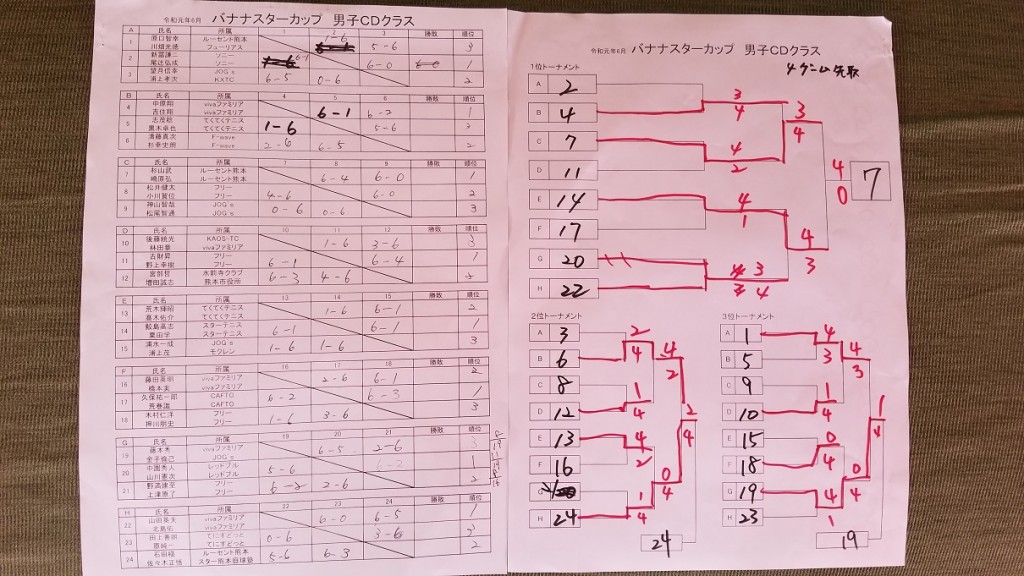 令和元年6月 バナナスターカップ 男子CDクラス
A 氏名 所属 1 2 3 勝敗 順位
1 原口智幸 ルーセント熊本 1-6 5-6 3
川畑光徳 フューリアス
2 ソニー 6-1 6-0 1
尾辻弘成 ソニー
3 望月信幸 JOG's 6-5 0-6 2
浦上孝次 KXTC
B 氏名 所属 4 5 6 勝敗 順位
4 中原翔 vivaファミリア 6-1 6-2 1
吉住翔 vivaファミリア
5 志茂聡 てくてくテニス 1-6 5-6 3
黒木幸也 てくてくテニス
6 F-wave 2-6 6-5 2
杉幸史朗 F-wave
C 氏名 所属 7 8 9 勝敗 順位
7 杉山武 ルーセント熊本 6-4 6-0 1
嶋原弘 ルーセント熊本
8 松井健太 フリー 4-6 6-0 2
小川賢位 フリー
9 神山智哉 JOG's 0-6 0-6 3
松尾智通 JOG's
D 氏名 所属 10 11 12 勝敗 順位
10 後藤純光 KAOS-TC 1-6 3-6 3
林田章 vivaファミリア
11 古財昇 フリー 6-1 6-4 1
野上幸樹 フリー
12 宮部哲 水前寺クラブ 6-3 4-6 2
増田誠志 熊本市役所
E 氏名 所属 13 14 15 勝敗 順位
13 荒木輝昭 てくてくテニス 1-6 6-1 2
嘉木佑介 てくてくテニス
14 鮫島高志 スターテニス 6-1 6-1 1
栗田学 スターテニス
15 清水一成 JOG's 1-6 1-6 3
浦上茂 モクレン
F 氏名 所属 16 17 18 勝敗 順位
16 藤田英明 vivaファミリア 2-6 6-1 2
橋本実 vivaファミリア
17 久保祐一郎 CAFTC 6-2 6-3 1
荒巻識 CAFTC
18 木村仁洋 フリー 1-6 3-6 3
押川朋史 フリー
G 氏名 所属 19 20 21 勝敗 順位
19 藤本秀 vivaファミリア 6-5 2-6 3
金子俊己 JOG's
20 中園秀人 レッドブル 5-6 6-2 1
山川憲次 レッドブル
21 野高謙至 フリー 6-2 2-6 2
上津悠了 フリー
H 氏名 所属 22 23 24 勝敗 順位
22 山田英夫 vivaファミリア 6-0 6-5 1
北島佑 vivaファミリア
23 田上善朗 てにすどっと 0-6 3-6 3
原純一 てにすどっと
24 石田稔 ルーセント熊本 5-6 6-3 2
佐々木正悟
令和元年6月 バナナスターカップ 男子CDクラス
4ゲーム先取
1位トーナメント
A 2
3
B 4
4
3
C 7
4
4
2
D 11
4
0
7
E 14
4
F 17
1
4
G 20
3
3
H 22
4
2位トーナメント
A 3
2
B 6
4
4
C 8
1
2
D 12
4
2
E 13
4
4
F 16
2
0
G
1
4
H 24
4
24
3位トーナメント
A 1
4
B 5
3
4
C 9
1
3
D 10
4
1
E 15
0
4
F 18
4
0
G 19
4
4
H 23
1
19